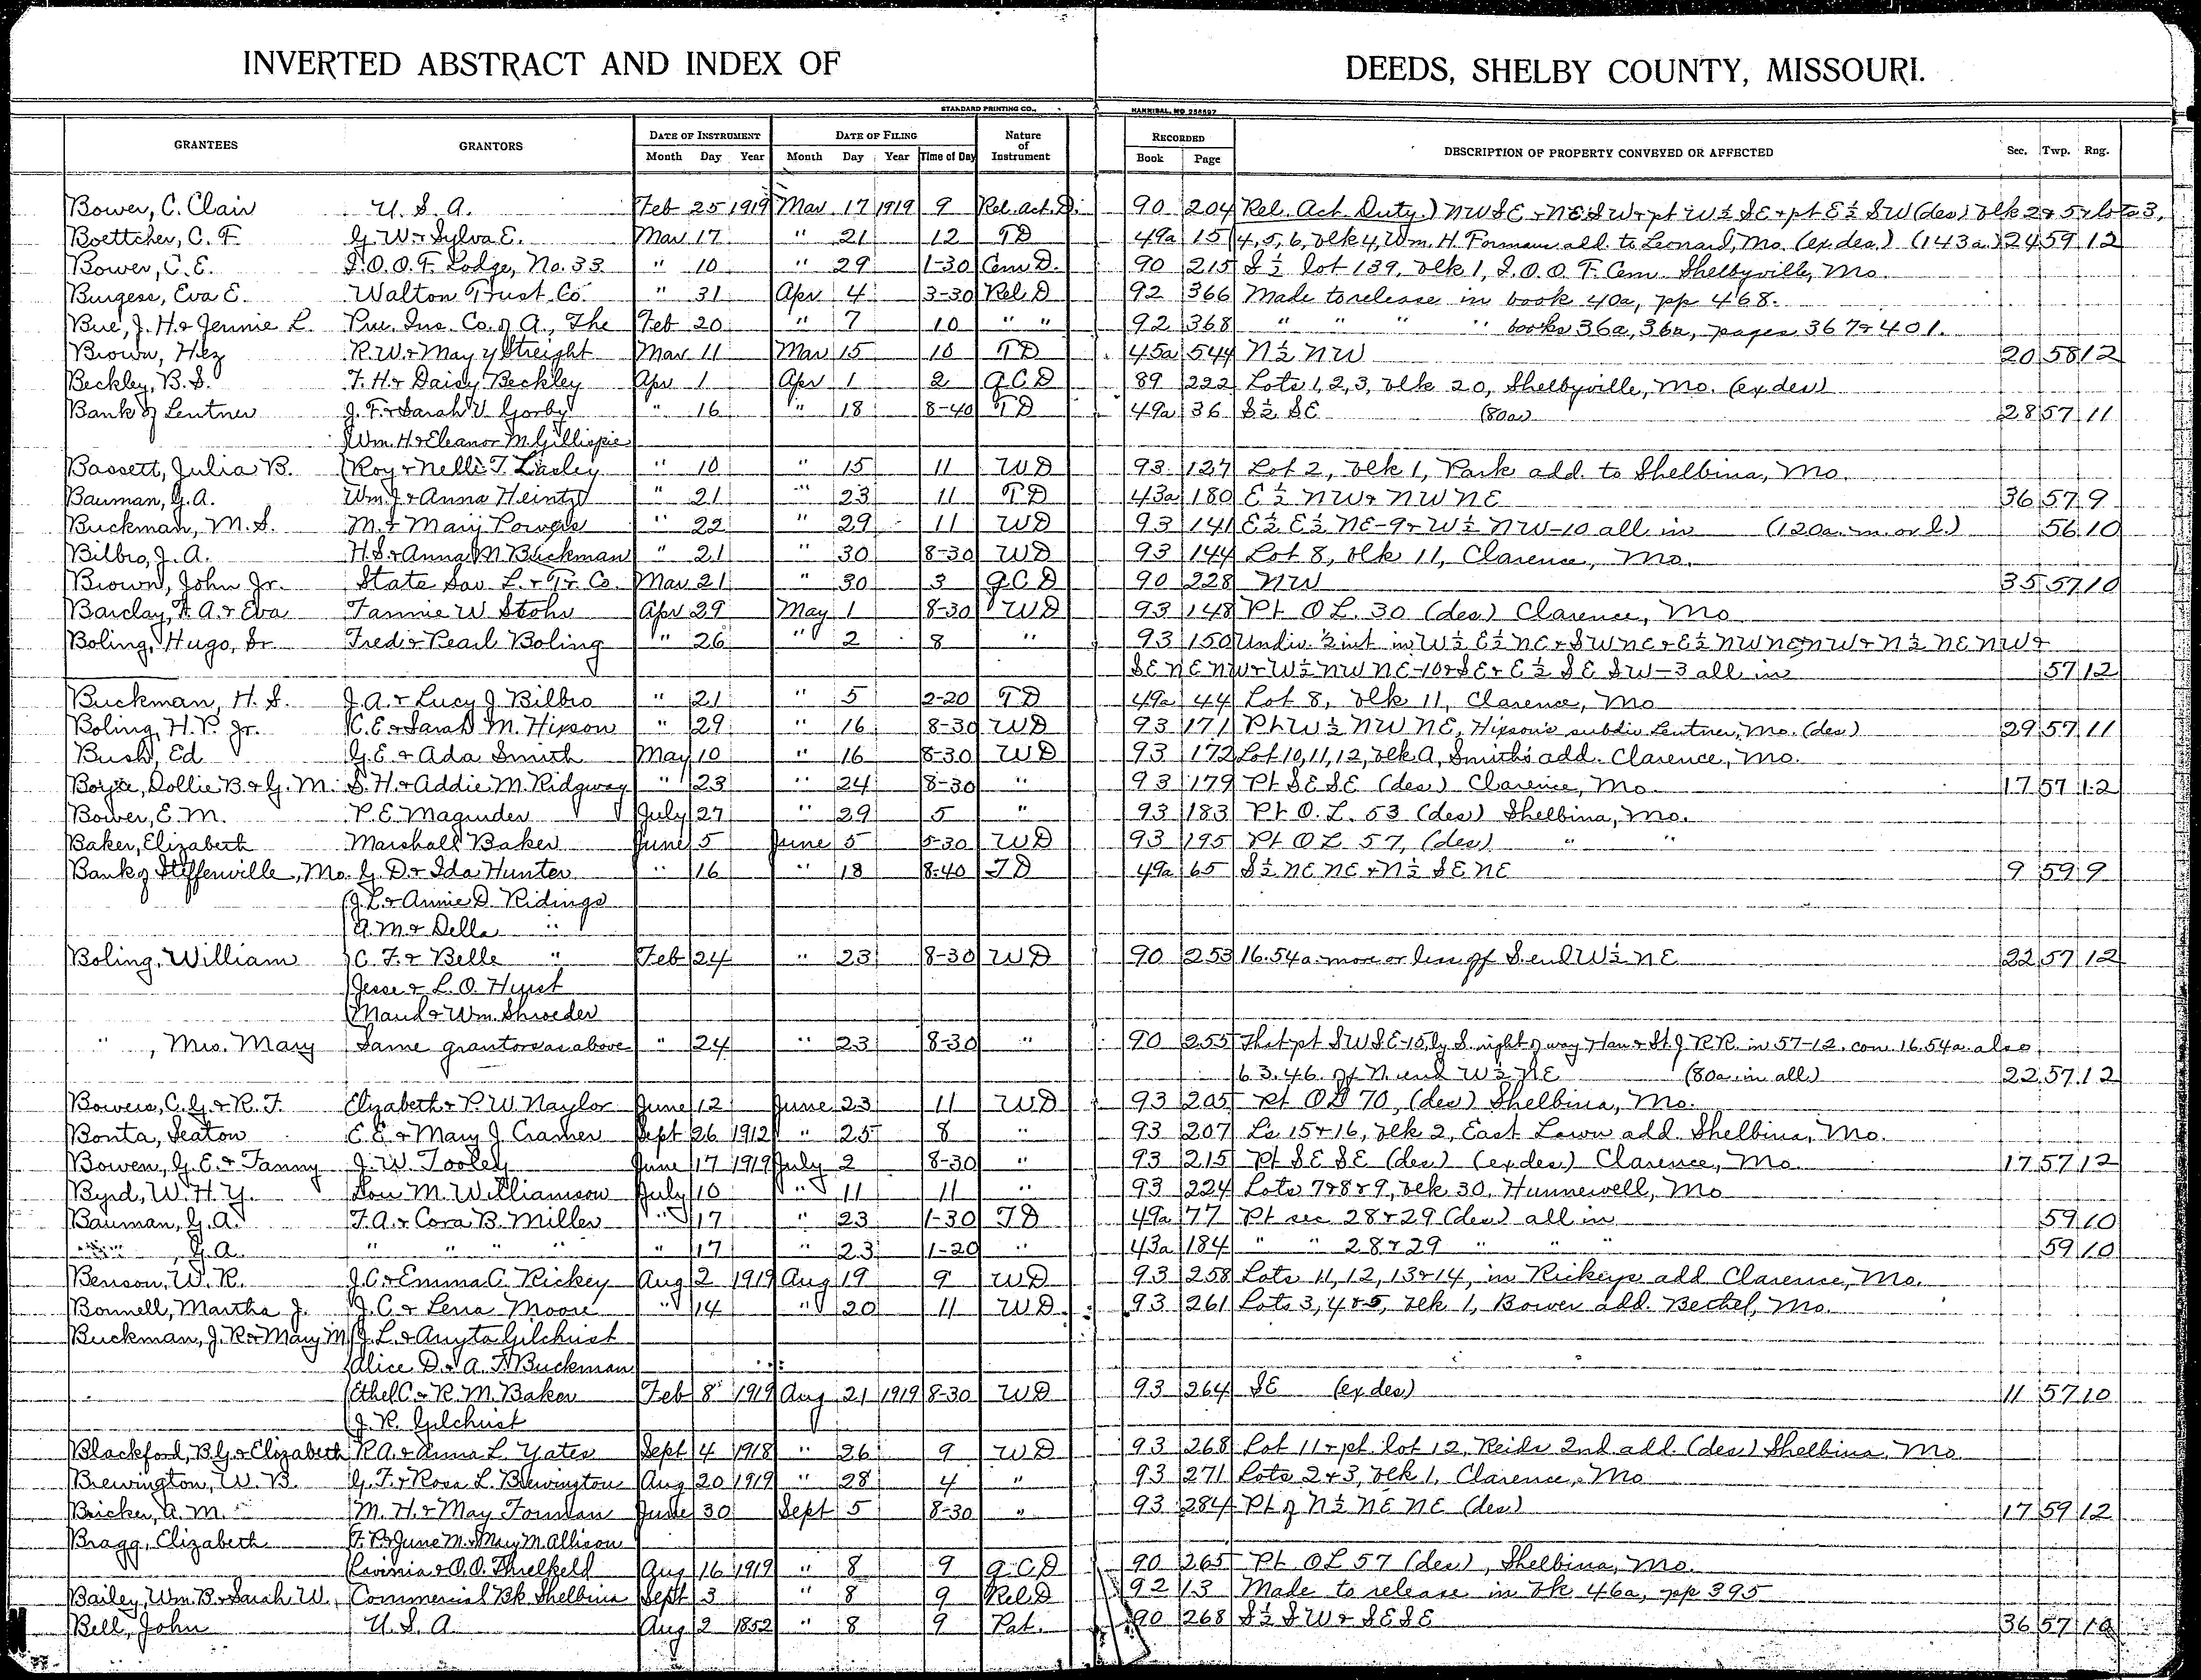 INVERTED ABSTRACT AND INDEX OF DEEDS, SHELBY COUNTY, MISSOURI.
STANDARD PRINTING CO., HANNIBAL, MO. 258697
GRANTEES GRANTORS DATE OF INSTRUMENT DATE OF FILING Nature of Instrument RECORDED DESCRIPTION OF PROPERTY CONVEYED OR AFFECTED Sec. Twp. Rng.
Month Day Year Month Day Year Time of Day Book Page
Bower, C. Clair U. S. A. Feb 25 1919 Mar 17 1919 9 Rel. Act. D. 90 204 Rel. Act. Duty.) NWSE & NESW & pt W½ SE & pt E½ SW (des) blk 2 & 5 & lots 3,
Boettcher, C. F. G. W. & Sylva E. Mar 17 " 21 12 TD 49a 15 4, 5, 6, blk 4, Wm. H. Forman add. to Leonard, Mo. (ex des.) (143a.) 24 59 12
Bower, C. E. I. O. O. F. Lodge, No. 33 " 10 " 29 1-30 Cem D. 90 215 S½ lot 139, blk 1, I. O. O. F. Cem. Shelbyville, Mo.
Burgess, Eva E. Walton Trust Co. " 31 Apr 4 3-30 Rel D 92 366 Made to release in book 40a, pp 468.
Bue, J. H. & Jennie L. Pru. Ins. Co. of A., The Feb 20 " 7 10 " " 92 368 " " " " books 36a, 36a, pages 367 & 401.
Brown, Hez R. W. & May Y Streight Mar 11 Mar 15 10 TD 45a 544 N½ NW 20 58 12
Beckley, B. S. F. H. & Daisy Beckley Apr 1 Apr 1 2 QCD 89 222 Lots 1, 2, 3, blk 20, Shelbyville, Mo. (ex des)
Bank of Lentner J. F. & Sarah V. Gorby " 16 " 18 8-40 TD 49a 36 S½ SE (80a) 28 57 11
(Wm. H. & Eleanor M. Gillispie
Bassett, Julia B. (Roy & Nelle T. Lasley " 10 " 15 11 WD 93 127 Lot 2, blk 1, Park add. to Shelbina, Mo.
Bauman, G. A. Wm. J. & Anna Heintz " 21 " 23 11 TD 43a 180 E½ NW & NWNE 36 57 9
Buckman, M. S. M. & Mary Powers " 22 " 29 11 WD 93 141 E½ E½ NE-9 & W½ NW-10 all in (120a. m. or l.) 56 10
Bilbro, J. A. H. S. & Anna M. Buckman " 21 " 30 8-30 WD 93 144 Lot 8, blk 11, Clarence, Mo.
Brown, John Jr. State Sav. L. & Tr. Co. Mar 21 " 30 3 QCD 90 228 NW 35 57 10
Barclay, F. A. & Eva Fannie W Stohr Apr 29 May 1 8-30 WD 93 148 Pt OL. 30 (des) Clarence, Mo
Boling, Hugo, Sr. Fred & Pearl Boling " 26 " 2 8 " 93 150 Undiv. ½ int in W½ E½ NE & SWNE & E½ NWNE & NW & N½ NENW &
SENENW & W½ NWNE-10 & SE & E½ SE SW-3 all in 57 12
Buckman, H. S. J. A. & Lucy J. Bilbro " 21 " 5 2-20 TD 49a 44 Lot 8, blk 11, Clarence, Mo
Boling, H. P. Jr. C. E. & Sarah M. Hixson " 29 " 16 8-30 WD 93 171 Pt W½ NW NE, Hixson's subdiv Lentner, Mo. (des) 29 57 11
Bush, Ed G. E. & Ada Smith May 10 " 16 8-30 WD 93 172 Lot 10, 11, 12, blk. A, Smith's add. Clarence, Mo.
Boyce, Dollie B. & G. M. S. H. & Addie M. Ridgway " 23 " 24 8-30 " 93 179 Pt SESE (des) Clarence, Mo 17 57 12
Bower, E. M. P. E. Magruder July 27 " 29 5 " 93 183 Pt O. L. 53 (des) Shelbina, Mo.
Baker, Elizabeth Marshall Baker June 5 June 5 5-30 WD 93 195 Pt OL 57, (des) " "
Bank of Steffenville, Mo. G. D. & Ida Hunter " 16 " 18 8-40 TD 49a 65 S½ NENE & N½ SENE 9 59 9
(J. L. & Annie D. Ridings
(A. M. & Della "
Boling, William (C. F. & Belle " Feb 24 " 23 8-30 WD 90 253 16.54a. more or less of S. end W½ NE 22 57 12
(Jesse & L. O. Hurst
(Maud & Wm. Shroeder
" , Mrs. Mary Same grantors as above " 24 " 23 8-30 " 90 255 That pt SWSE-15, ly S. right of way Han & St. J RR. in 57-12. con. 16.54a. also
63.46. of N. end W½ NE (80a. in all) 22 57 12
Bowers, C. G. & R. F. Elizabeth & P. W. Naylor June 12 June 23 11 WD 93 205 Pt OL 70, (des) Shelbina, Mo.
Bonta, Seaton E. E. & Mary J. Cramer Sept 26 1912 " 25 8 " 93 207 Ls 15 & 16, blk 2, East Lawn add. Shelbina, Mo.
Bowen, G. E. & Fanny J. W. Tooley June 17 1919 July 2 8-30 " 93 215 Pt SESE (des) (ex des) Clarence, Mo. 17 57 12
Byrd, W. H. Y. Lou M. Williamson July 10 " 11 11 " 93 224 Lots 7 & 8 & 9, blk 30, Hunnewell, Mo
Bauman, G. A. F. A. & Cora B. Miller " 17 " 23 1-30 TD 49a 77 Pt sec 28 & 29 (des) all in 59 10
" , G. A. " " " " " 17 " 23 1-20 " 43a 184 " " 28 & 29 " " " 59 10
Benson, W. R. J. C. & Emma C. Rickey Aug 2 1919 Aug 19 9 WD 93 258 Lots 11, 12, 13 & 14, in Rickeys add. Clarence, Mo.
Bonnell, Martha J. J. C. & Lena Moore " 14 " 20 11 WD 93 261 Lots 3, 4 & 5, blk 1, Bower add. Bethel, Mo.
Buckman, J. R. & Mary M. (J. L. & Anyta Gilchrist
(Alice D. & A. F. Buckman
(Ethel C. & R. M. Baker Feb 8 1919 Aug 21 1919 8-30 WD 93 264 SE (ex des) 11 57 10
(J. R. Gilchrist
Blackford, B. G. & Elizabeth R. A. & Anna L. Yates Sept 4 1918 " 26 9 WD 93 268 Lot 11 & pt lot 12, Reids 2nd add. (des) Shelbina, Mo
Brewington, W. B. G. F. & Rosa L. Brewington Aug 20 1919 " 28 4 " 93 271 Lots 2 & 3, blk 1, Clarence, Mo
Bricker, A. M. M. H. & May Forman June 30 Sept 5 8-30 " 93 284 Pt of N½ NE NE (des) 17 59 12
Bragg, Elizabeth F. P. & June M. & Mary M. Allison
(Lavinia & O. O. Threlkeld Aug 16 1919 " 8 9 QCD 90 265 Pt OL 57 (des), Shelbina, Mo.
Bailey, Wm. B. & Sarah W. Commercial Bk Shelbina Sept 3 " 8 9 Rel D 92 13 Made to release in Bk 46a, pp 395
Bell, John U. S. A. Aug 2 1852 " 8 9 Pat. 90 268 S½ SW & SESE 36 57 10